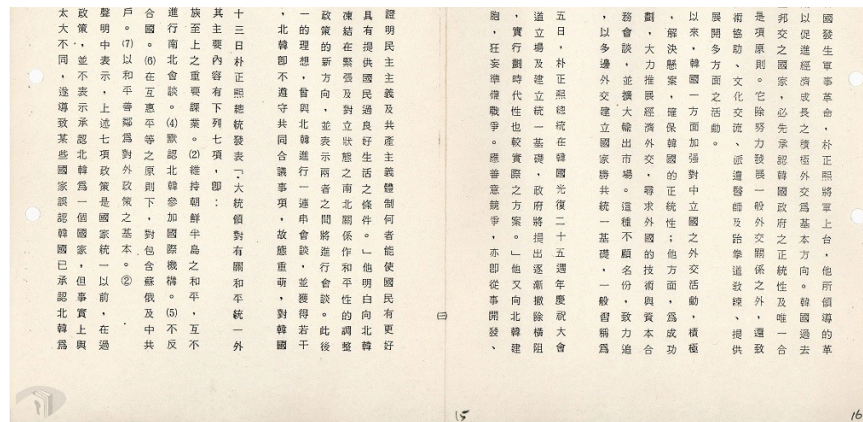 國發生軍事革命,朴正熙將軍上台,他所領導的革
以促進經濟成長之積極外交爲基本方向。韓國過去
邦交之國家,必先承認韓國政府之正統性及唯一合
是項原則。它除努力發展一般外交關係之外,還致
術協助、文化交流、派遣醫師及跆拳道教練、提供
展開多方面之活動。
以來,韓國一方面加強對中立國之外交活動,積極
,解決懸案,確保韓國的正統性;他方面,爲成功
劃,大力推展經濟外交,尋求外國的技術與資本合
務會談,並擴大輸出市場。這種不顧名份,致力追
,以多邊外交建立國家勝共統一基礎,一般習稱爲
五日,朴正熙總統在韓國光復二十五週年慶祝大會
道立場及建立統一基礎,政府將提出逐漸撤除橫阻
,實行劃時代性也較實際之方案。」他又向北韓建
胞,狂妄準備戰爭。應善意競爭,亦即從事開發、
16
證明民主主義及共產主義體制何者能使國民有更好
具有提供國民過良好生活之條件。」他明白向北韓
凍結在緊張及對立狀態之南北關係作和平性的調整
政策的新方向,並表示兩者之間將進行會談。此後
一的理想,曾與北韓進行一連串會談,並獲得若干
,北韓卽不遵守共同合議事項,故態重萌,對韓國
十三日朴正熙總統發表「大統領對有關和平統一外
其主要內容有下列七項,卽:
族至上之重要課業。(2)維持朝鮮半島之和平,互不
進行南北會談。(4)歡認北韓參加國際機構。(5)不反
合國。(6)在互惠平等之原則下,對包含蘇俄及中共
戶。(7)以和平善鄰爲對外政策之基本。②
聲明中表示,上述七項政策是國家統一以前,在過
政策,並不表示承認北韓爲一個國家,但事實上與
太大不同,遂導致某些國家誤認韓國已承認北韓爲
15